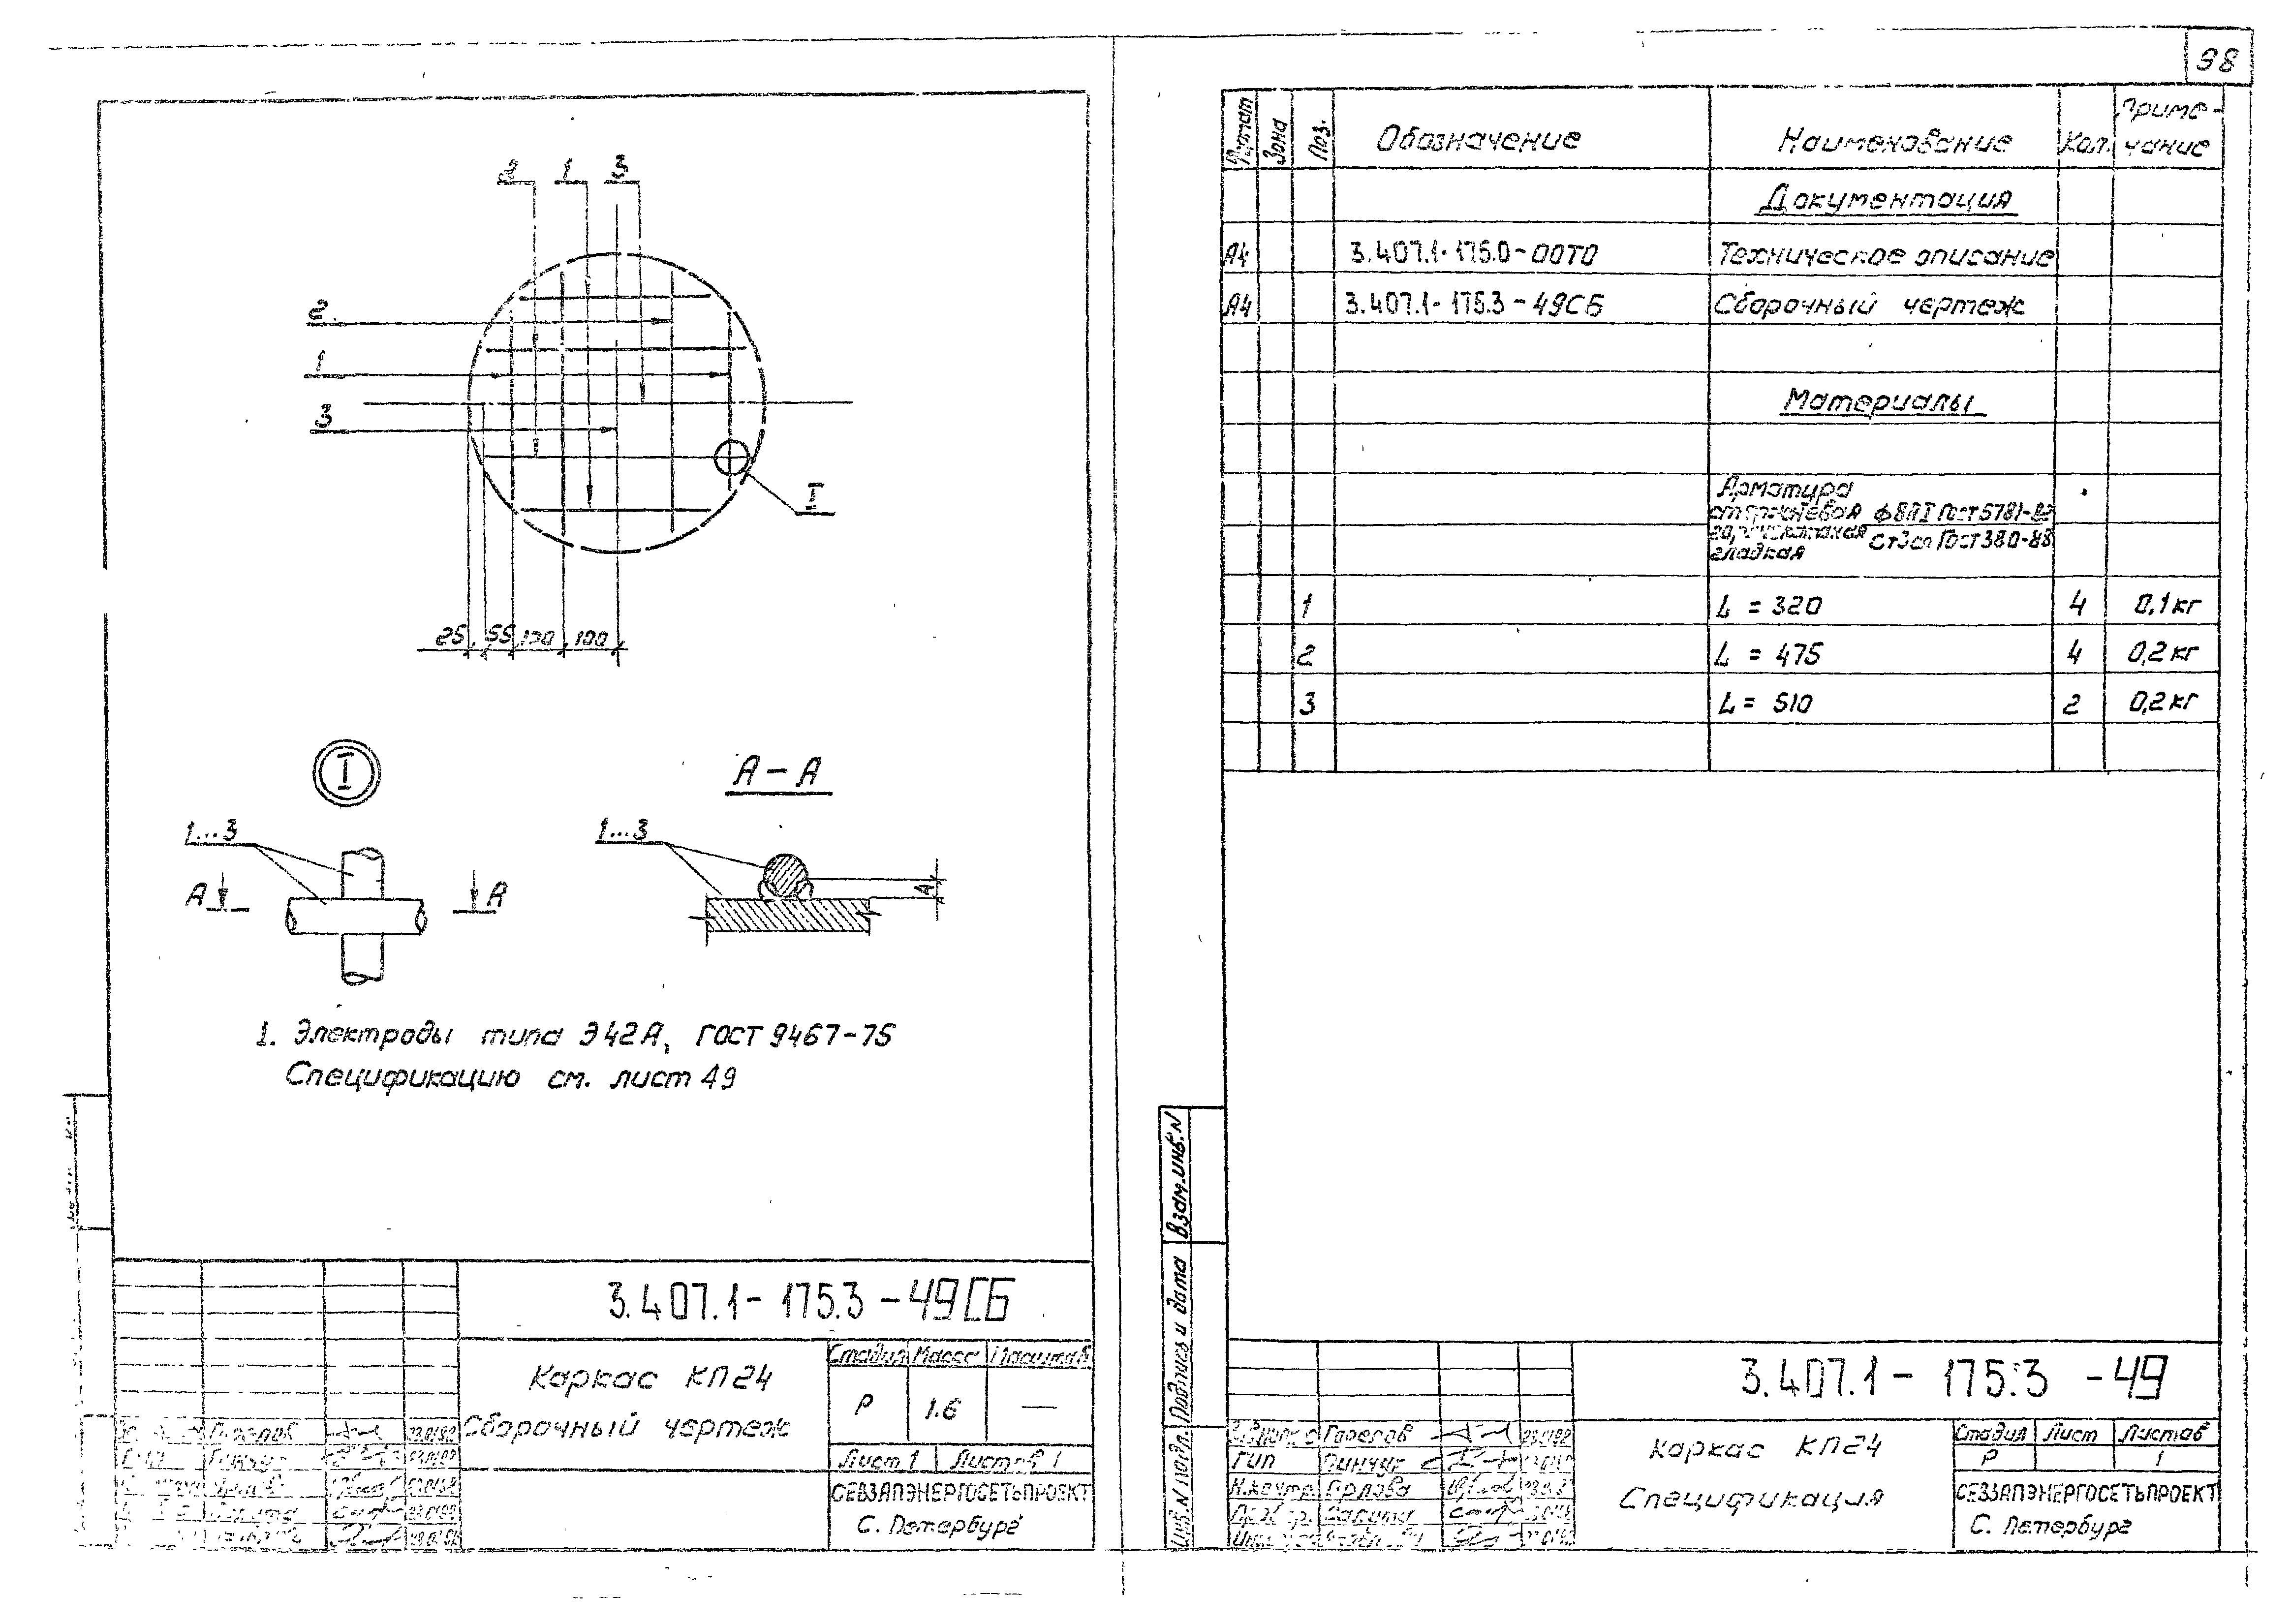 38
2 1 3
2
1
3
I
25 55 100 100
I
А-А
1...3
1...3
А А
1. Электроды типа Э42А, ГОСТ 9467-75
Спецификацию см. лист 49
3.407.1-175.3-49СБ
Каркас КП24
Сборочный чертеж
Стадия Масса Масштаб
Р 1.6 —
Лист 1 Листов 1
СЕВЗАПЭНЕРГОСЕТЬПРОЕКТ
С. Петербург
Формат Зона Поз. Обозначение Наименование Кол. Приме-
чание
Документация
А4 3.407.1-175.0-00ТО Техническое описание
А4 3.407.1-175.3-49СБ Сборочный чертеж
Материалы
Арматура
стержневая ф8АI ГОСТ 5781-82
горячекатаная Ст3сп ГОСТ 380-88
гладкая
1 L = 320 4 0,1кг
2 L = 475 4 0,2кг
3 L = 510 2 0,2кг
Взам.инв.N
Подпись и дата
Инв.N подл.
3.407.1-175.3-49
ГИП Пинчук
Н.контр. Орлова
Каркас КП24
Спецификация
Стадия Лист Листов
Р 1
СЕВЗАПЭНЕРГОСЕТЬПРОЕКТ
С. Петербург